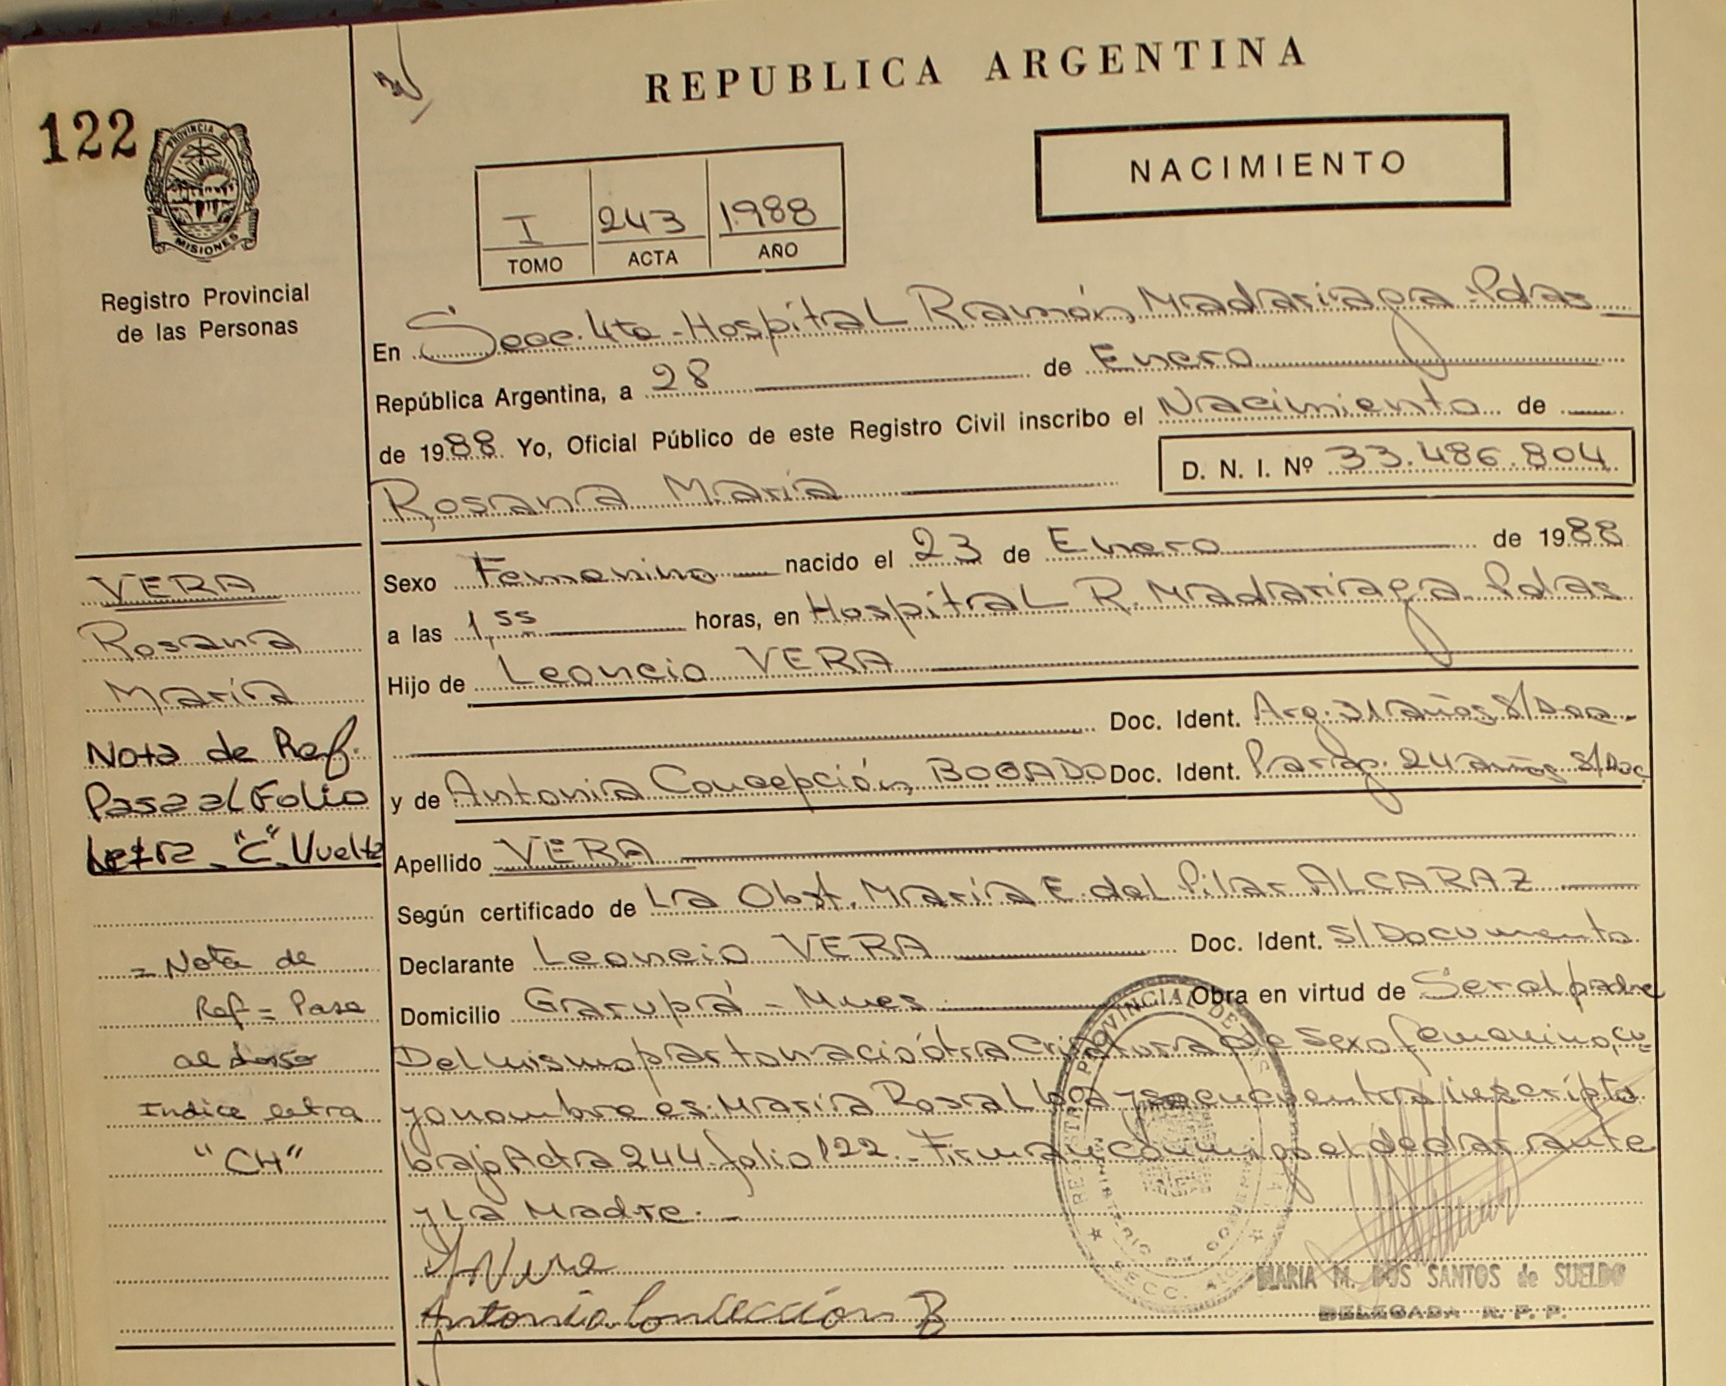 122
PROVINCIA DE
MISIONES
Registro Provincial
de las Personas
REPUBLICA ARGENTINA
NACIMIENTO
I 243 1988
TOMO ACTA AÑO
En Secc. 4ta - Hospital Ramón Madariaga - Pdas
República Argentina, a 28 de Enero
de 1988. Yo, Oficial Público de este Registro Civil inscribo el Nacimiento de
Rosana María D. N. I. Nº 33.486.804
Sexo Femenino nacido el 23 de Enero de 1988
a las 1,55 horas, en Hospital R. Madariaga Pdas
Hijo de Leoncio VERA
Doc. Ident. Arg. 31 años S/Doc.
y de Antonia Concepción BOGADO Doc. Ident. Parag. 24 años S/Doc
Apellido VERA
Según certificado de La Obst. María E. del Pilar ALCARAZ
Declarante Leoncio VERA Doc. Ident. S/Documento
Domicilio Garupá - Mnes Obra en virtud de Ser al padre
Del mismo parto nació ótra Criatura de sexo femenino, cu-
yo nombre es: María Rosalba y se encuentra inscripta
bajo Acta 244 folio 122. - Firman conmigo el declarante
y La Madre. -
Antonia Conseccion B
MARIA M. DOS SANTOS de SUELDO
DELEGADA R. P. P.
VERA
Rosana
María
Nota de Ref.
Pasa al Folio
Letra "C" Vuelta
= Nota de
Ref = Pasa
al dorso
Indice letra
"CH"